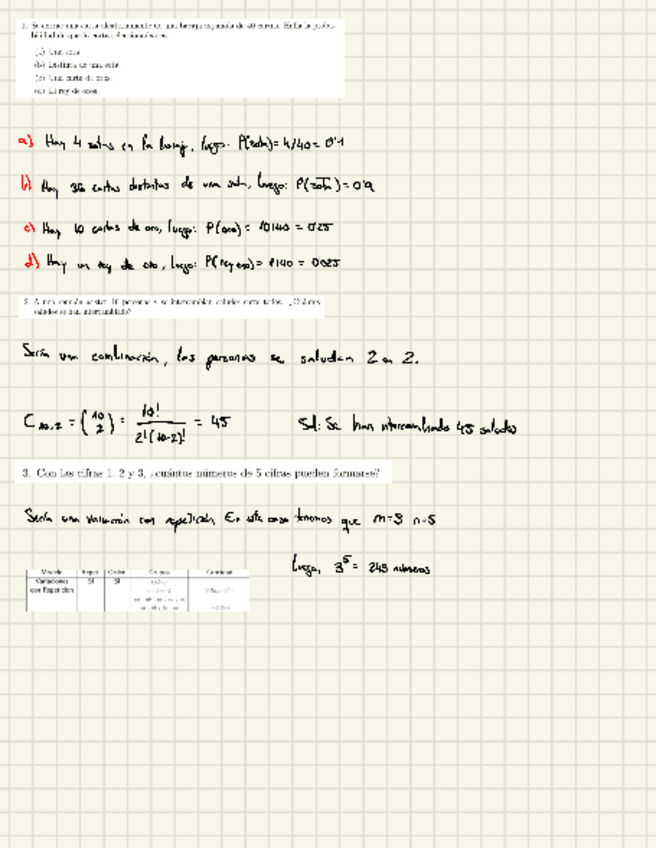 1. Se extrae una carta aleatoriamente de una baraja española de 40 cartas. Halla la proba-
bilidad de que la carta
(a) Una sota.
(b) Distinta de una sota.
(c) Una carta de oros.
(d) El rey de oros.
a) Hay 4 sotas en la baraja, luego: P(sota)= 4/40 = 0'1
b) Hay 36 cartas distintas de una sota, luego: P(sota) = 0'9
c) Hay 10 cartas de oro, luego: P(oro) = 10/40 = 0'25
d) Hay un rey de oro, luego: P(rey oro) = 1/40 = 0'025
2. A una reunión asisten 10 personas y se intercambian saludos entre todos. ¿Cuántos
saludos se han intercambiado?
Sería una combinación, las personas se saludan 2 a 2.
C 10,2 = (10 2) = 10! / 2!(10-2)! = 45
Sol: Se han intercambiado 45 saludos
3. Con las cifras 1, 2 y 3, ¿cuántos números de 5 cifras pueden formarse?
Sería una variación con repetición. En este caso tenemos que m=3 n=5
Luego, 3^5 = 243 números
Modelo Repet Orden Grupos Cantidad
Variaciones SI SI
con Repetición